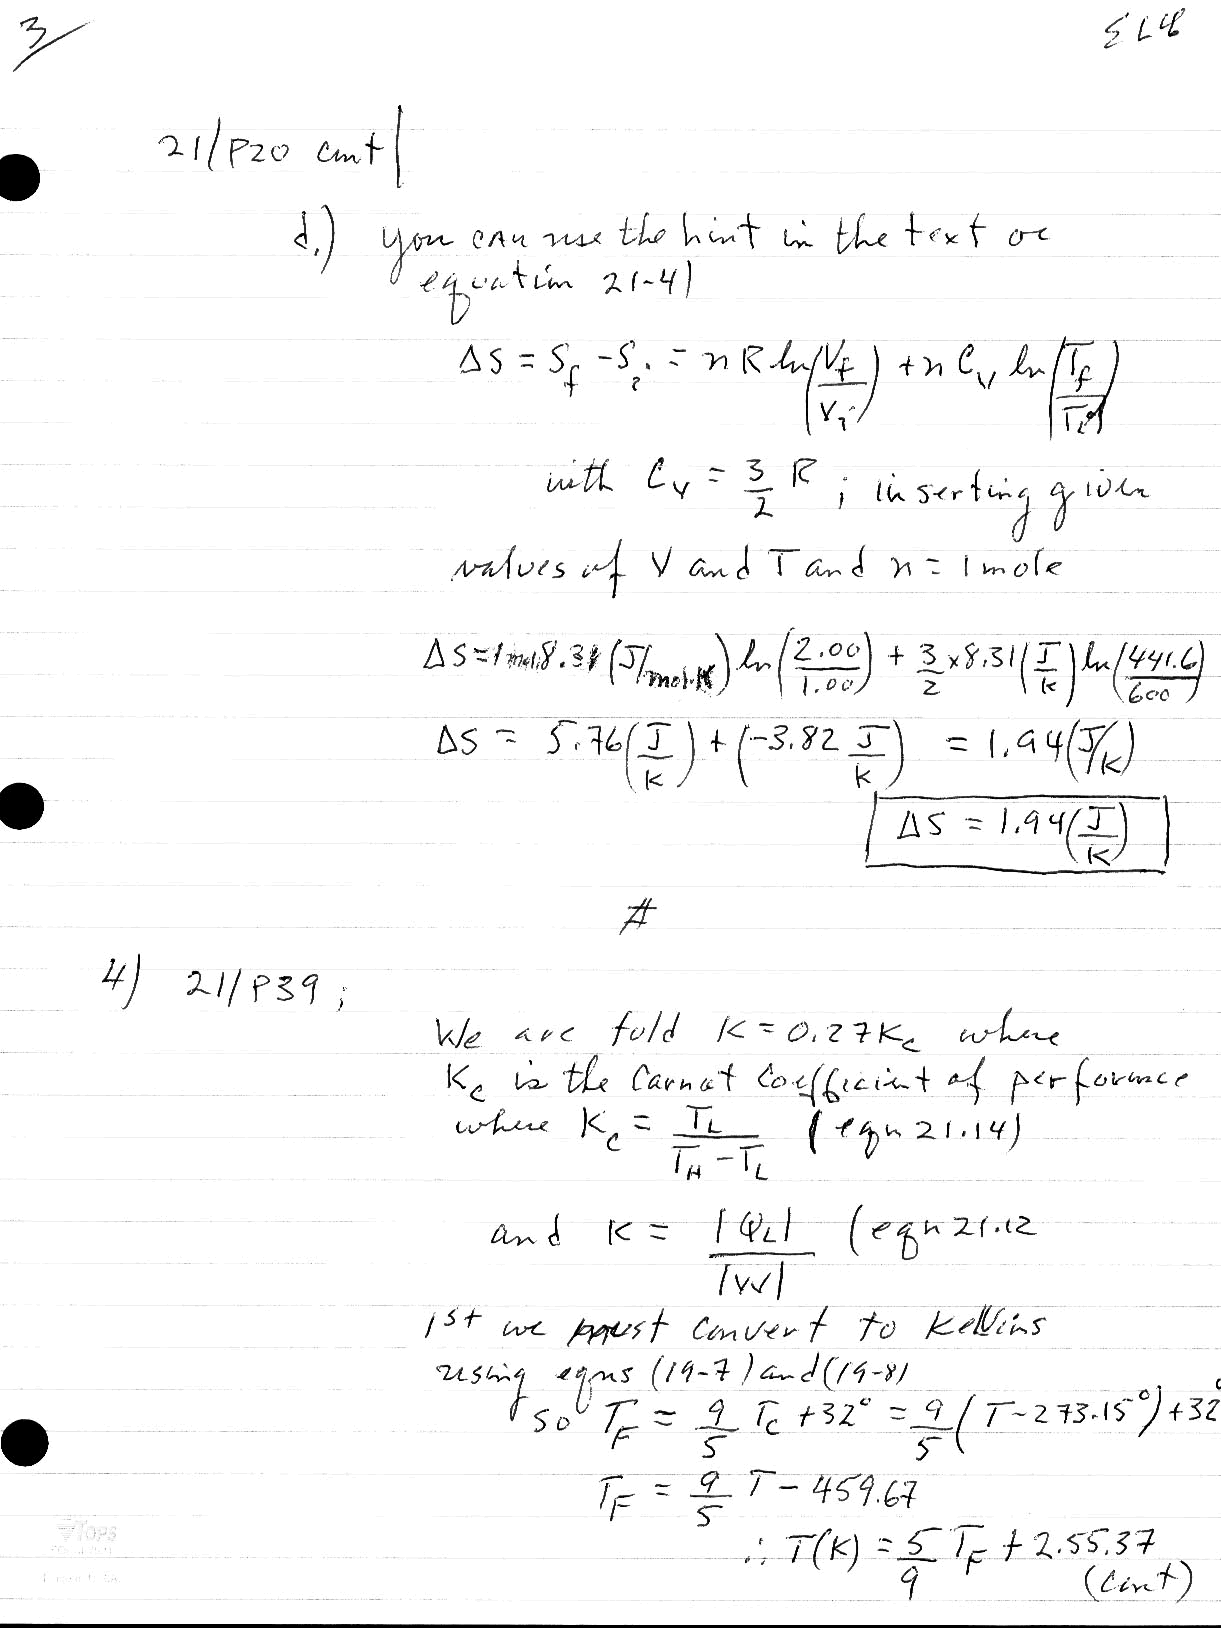 3
21/P20 cont
d.) you can use the hint in the text or
equation 21-4)
ΔS = S_f - S_i = n R ln(V_f/V_i) + n C_V ln(T_f/T_i)
with C_V = 3/2 R ; inserting given
values of V and T and n = 1 mole
ΔS = 1 mol. 8.31 (J/mol·K) ln(2.00/1.00) + 3/2 x 8.31 (J/K) ln(441.6/600)
ΔS = 5.76 (J/K) + (-3.82 J/K) = 1.94 (J/K)
ΔS = 1.94 (J/K)
#
4) 21/P39 ;
We are told K = 0.27 K_c where
K_c is the Carnot Coefficient of performce
where K_c = T_L/(T_H - T_L) (eqn 21.14)
and K = |Q_L|/|W| (eqn 21.12
1st we must convert to Kelvins
using eqns (19-7) and (19-8)
so T_F = 9/5 T_C + 32° = 9/5 (T - 273.15°) + 32°
T_F = 9/5 T - 459.67
∴ T(K) = 5/9 T_F + 2.55.37
(cont)
TOPS